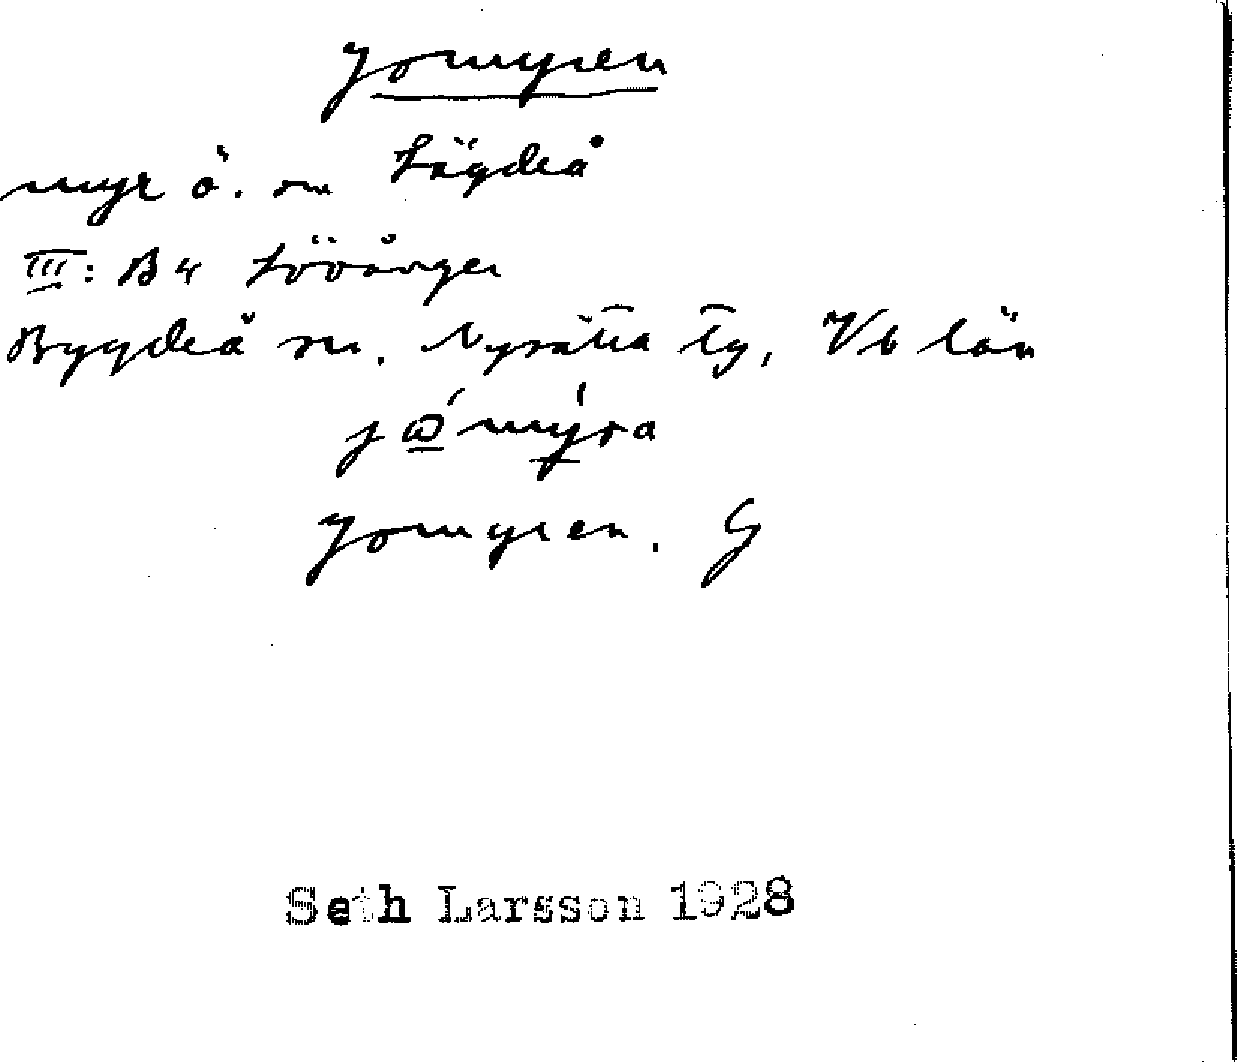 Jomyren
myr ö. om Lägdeå
III: B 4 Lövånger
Bygdeå sn. Nysätra tg, Vb län
Jomyren. G
Seth Larsson 1928